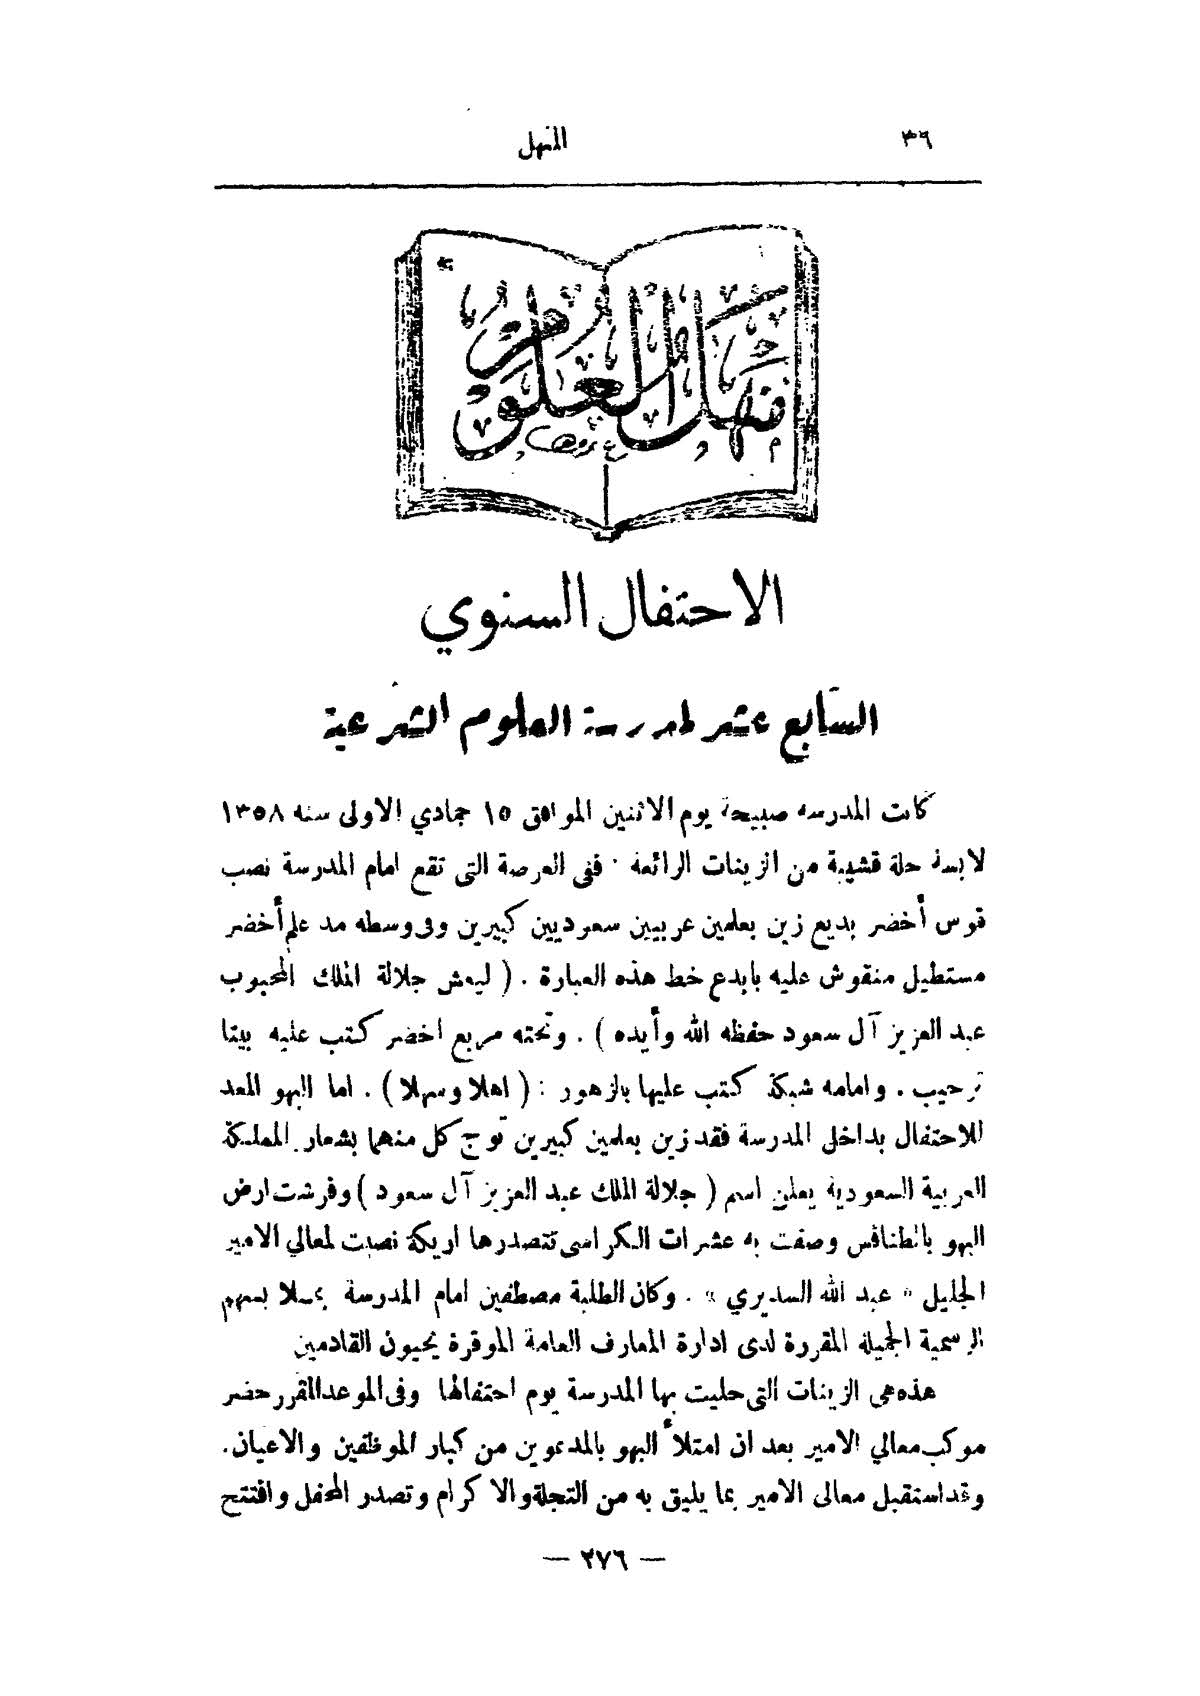 ٣٦
المنهل
منهل العلوم
الاحتفال السنوي
السابع عشر لمدرسة العلوم الشرعية
كانت المدرسه صبيحة يوم الاثنين الموافق ١٥ جمادي الاولى سنه ١٣٥٨
لابسة حلة قشيبة من الزينات الرائعة . ففى العرصة التى تقع امام المدرسة نصب
قوس أخضر بديع زين بعلمين عربيين سعوديين كبيرين وفى وسطه مد علم أخضر
مستطيل منقوش عليه بابدع خط هذه العبارة . ( ليعش جلالة الملك المحبوب
عبد العزيز آل سعود حفظه الله وأيده ) . وتحته مربع اخضر كتب عليه بيتا
ترحيب . وامامه شبكة كتب عليها بالزهور : ( اهلا وسهلا ) . اما البهو المعد
للاحتفال بداخلى المدرسة فقد زين بعلمين كبيرين توج كل منهما بشعار المملكة
العربية السعودية يعلن اسم ( جلالة الملك عبد العزيز آل سعود ) وفرشت ارض
البهو بالطنافس وصفت به عشرات الكراسى تتصدرها اريكة نصبت لمعالي الامير
الجليل « عبد الله السديري » . وكان الطلبة مصطفين امام المدرسة بملابسهم
الرسمية الجميلة المقررة لدى ادارة المعارف العامة الموقرة يحيون القادمين
هذه هى الزينات التى حليت بها المدرسة يوم احتفالها وفى الموعد المقرر حضر
موكب معالي الامير بعد ان امتلأ البهو بالمدعوين من كبار الموظفين والاعيان.
وقد استقبل معالى الامير بما يليق به من التجلة والاكرام وتصدر المحفل وافتتح
— ٢٧٦ —